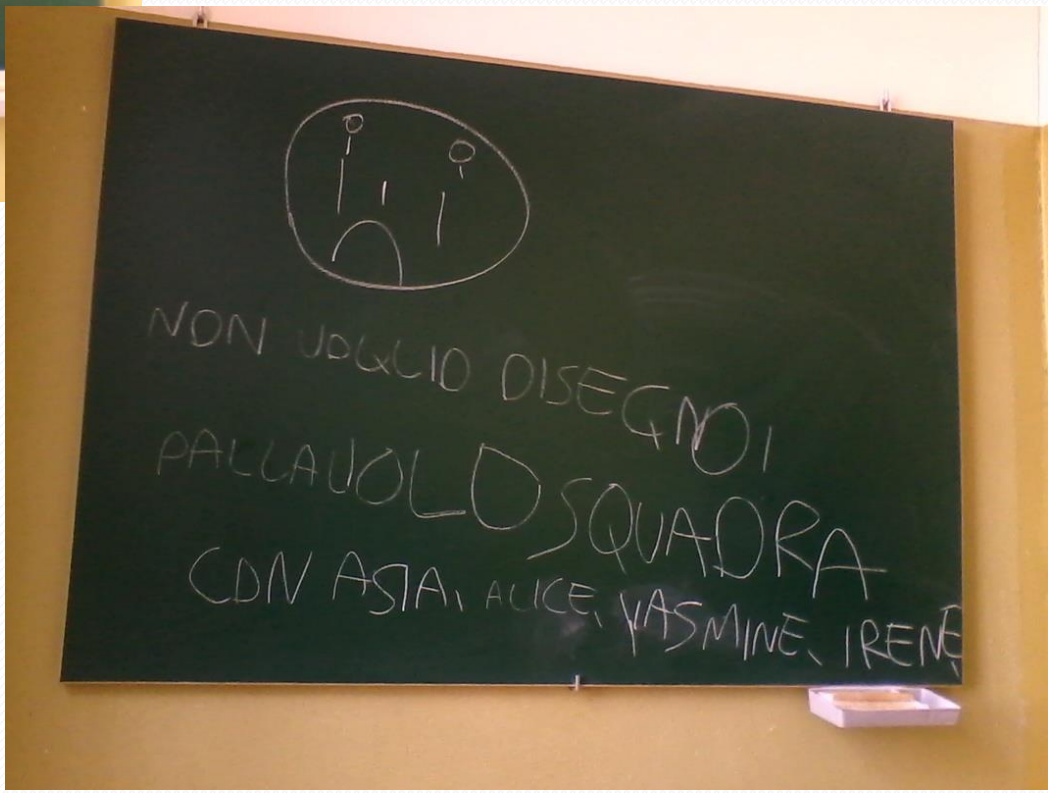 NON VOGLIO DISEGNO,
PALLAVOLO SQUADRA
CON ASIA, ALICE, YASMINE, IRENE,